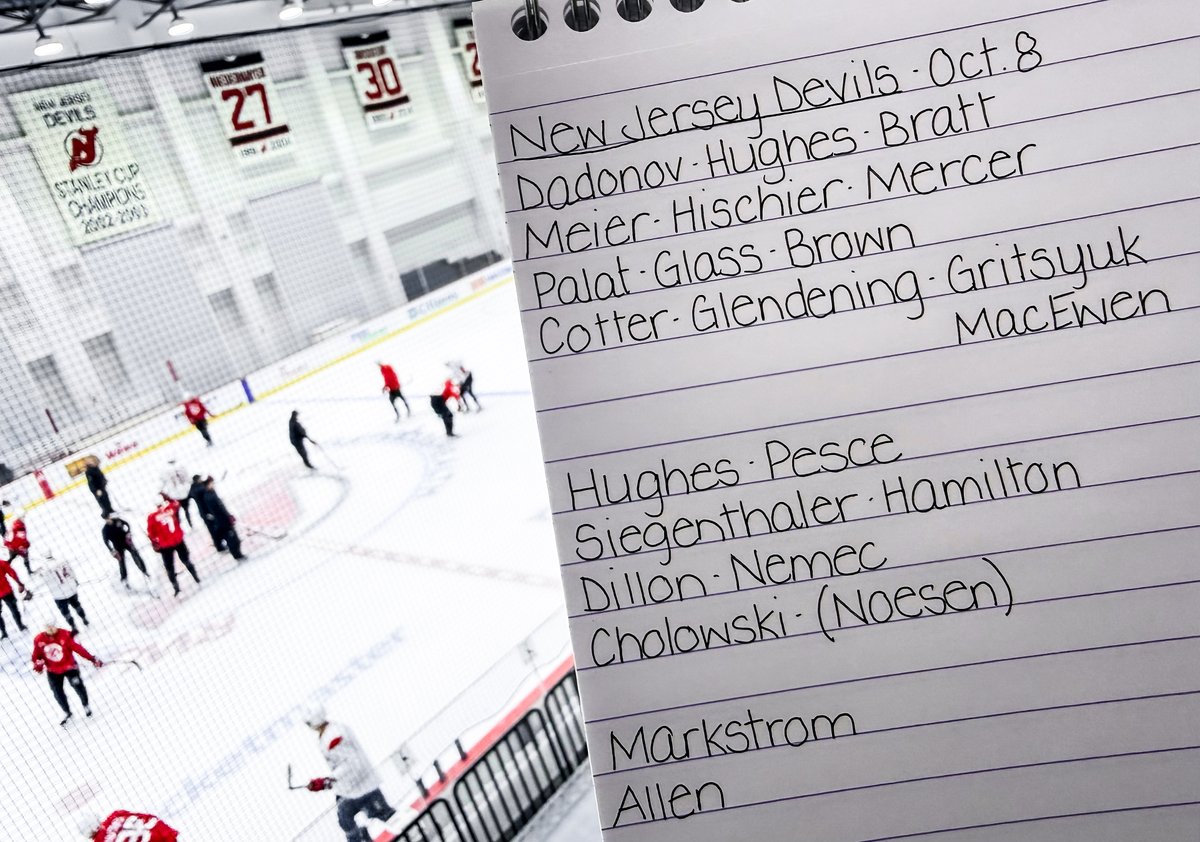 NEW JERSEY
DEVILS
STANLEY CUP
CHAMPIONS
2002-2003
27
30
2
7
14
New Jersey Devils · Oct. 8
Dadonov · Hughes · Bratt
Meier · Hischier · Mercer
Palat · Glass · Brown
Cotter · Glendening · Gritsyuk
MacEwen
Hughes · Pesce
Siegenthaler · Hamilton
Dillon · Nemec
Cholowski · (Noesen)
Markstrom
Allen